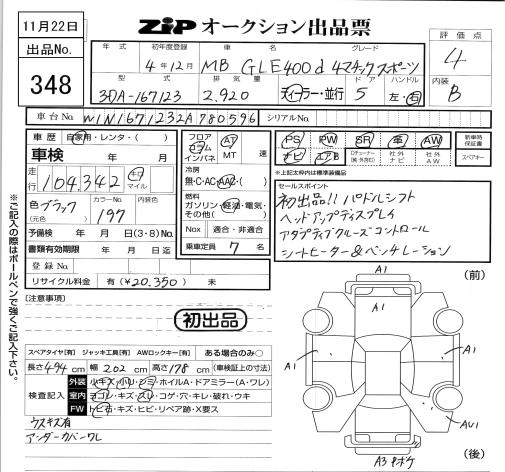 11月22日
出品No.
348
ZiP オークション出品票
評価点
4
内装
B
年式 初年度登録 車名 グレード
4年12月 MB GLE400d 4マチックスポーツ
型式 排気量 ドア ハンドル
3DA-167123 2.920 ディーラー・並行 5 左・右
車台No. W1N1671232A780596 シリアルNo.
車歴 自家用・レンタ・( )
車検 年 月
走行 104.342 キロ マイル
色 ブラック (元色) カラーNo. 197 内装色
予備検 年 月 日(3・8)No.
書類有効期限 年 月 日迄
登録No.
リサイクル料金 有(¥20.350) 未
フロア コラム インパネ AT MT 速
冷房 無・C・AC・AAC・( )
燃料 ガソリン・軽油・電気・その他( )
Nox 適合・非適合
乗車定員 7 名
PS PW SR 革 AW
ナビ エアB 社外ナビ 社外AW
新車時保証書
スペアキー
※上記太枠内は標準装備品
セールスポイント
初出品!! パドルシフト
ヘッドアップディスプレイ
アダプティブクルーズコントロール
シートヒーター&ベンチレーション
※ご記入の際はボールペンで強くご記入下さい。
(注意事項)
初出品
スペアタイヤ[有] ジャッキ工具[有] AWロックキー[有] ある場合のみ○
長さ 494 cm 幅 202 cm 高さ 178 cm (車検証上の寸法)
検査記入
外装 小キズ・小リ・ジミ・ホイルA・ドアミラー(A・ワレ)
室内 ヨゴレ・キズ・スレ・コゲ・穴・キレ・破れ・ウキ
FW トビ石・キズ・ヒビ・リペア跡・X要ス
ウスキズ有
アンダーカバーワレ
(前)
A1
A1
A1
A1
AU1
A3
(後)